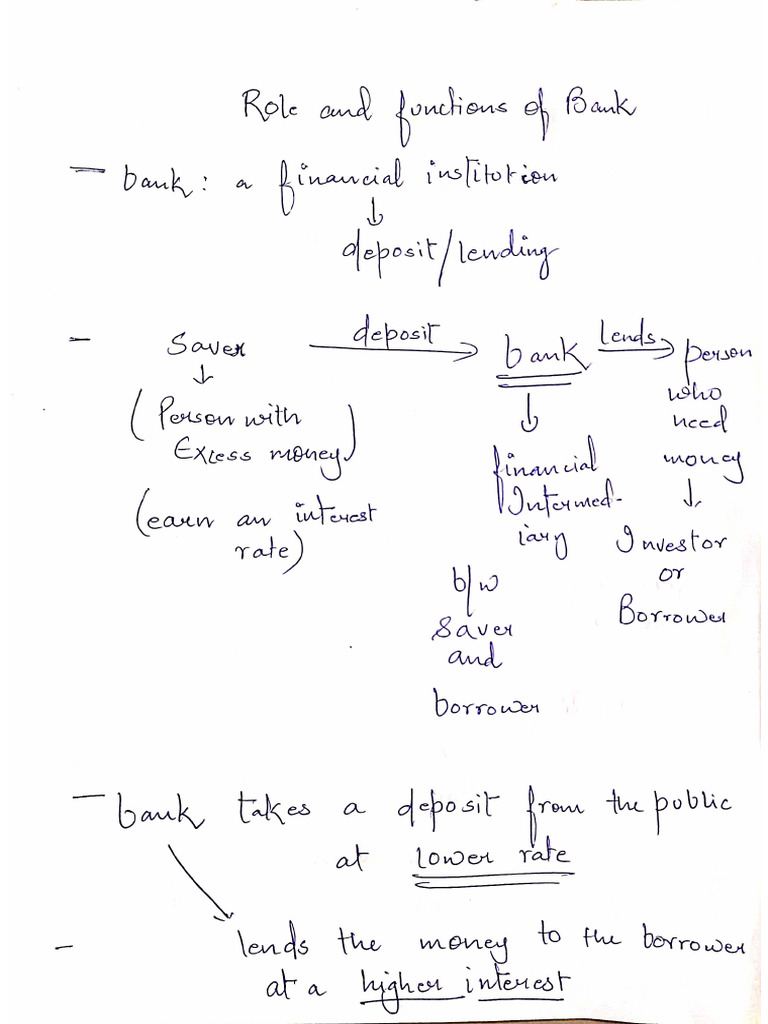 Role and functions of Bank
— bank: a financial institution
↓
deposit/lending
— Saver —deposit→ bank —lends→ person
↓
who
(Person with
need
Excess money)
↓
money
financial
↓
(earn an interest
Intermed-
rate)
iary
Investor
b/w
or
Saver
Borrower
and
borrower
— bank takes a deposit from the public
at lower rate
— lends the money to the borrower
at a higher interest